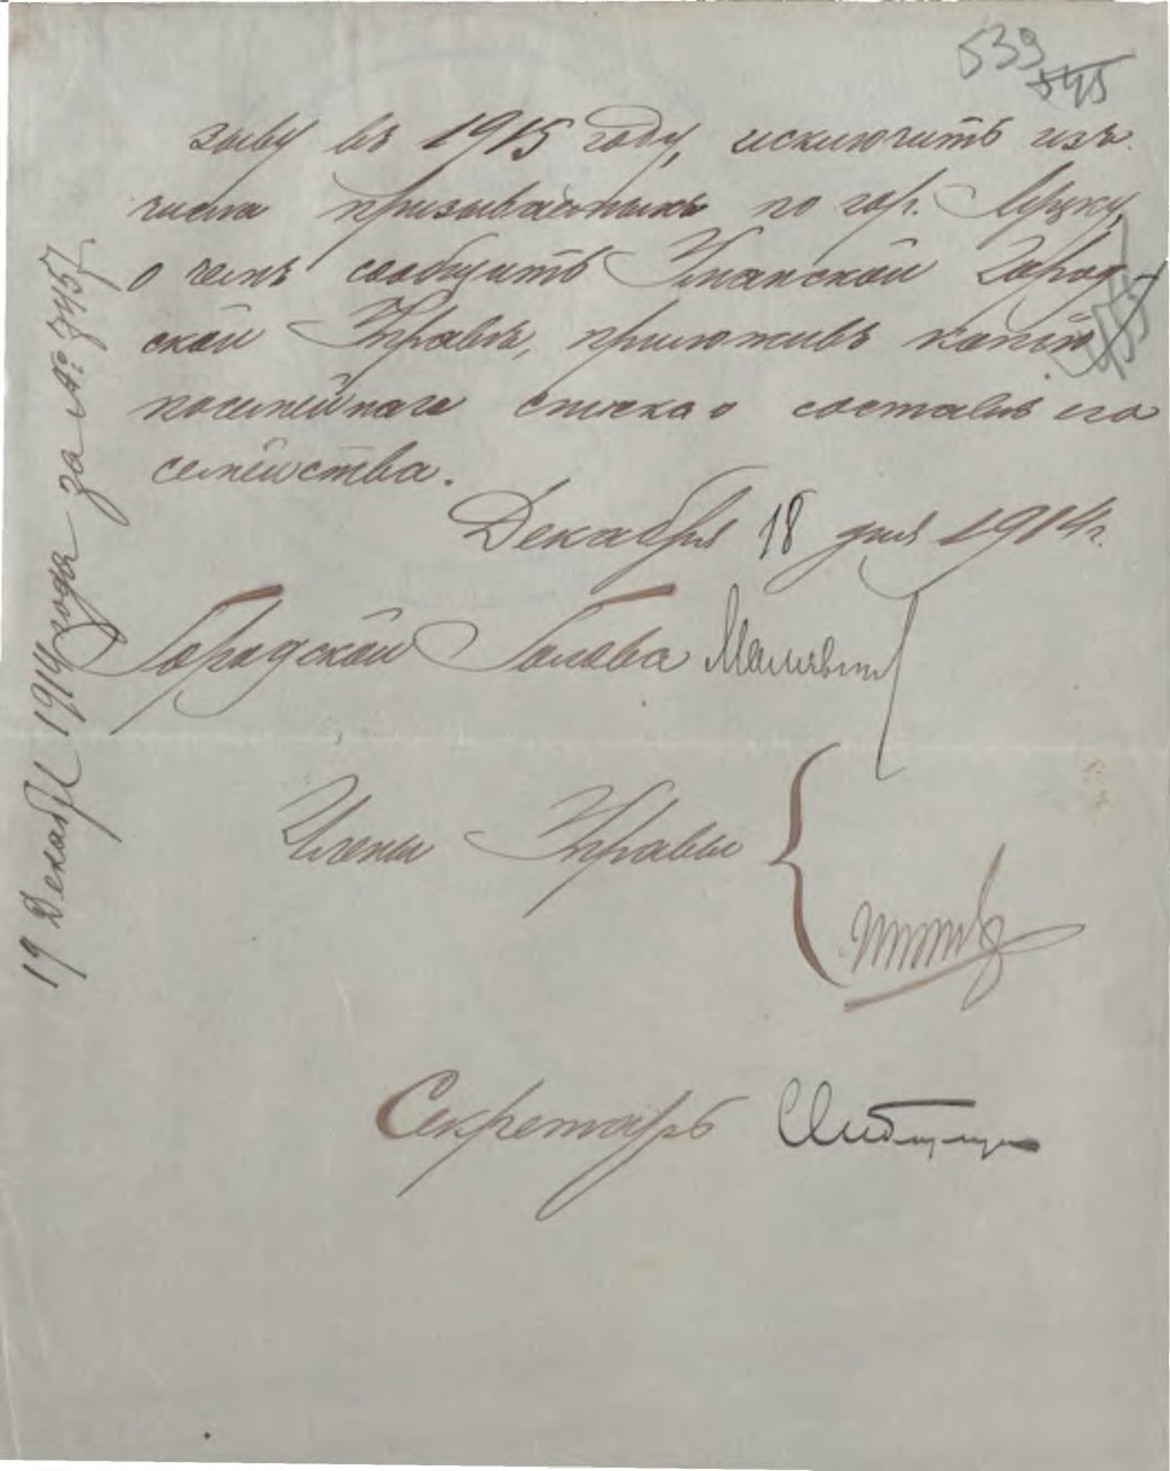 539
545
зыву въ 1915 году, исключить изъ
числа призываемыхъ по гор. Луцку,
о чемъ сообщить Уманской Город-
ской Управѣ, приложивъ копію
посемейнаго списка о составѣ его
семейства.
Декабря 18 дня 1914 г.
Городской Голова
Члены Управы
Секретарь
19 Декабря 1914 года за №: 7457